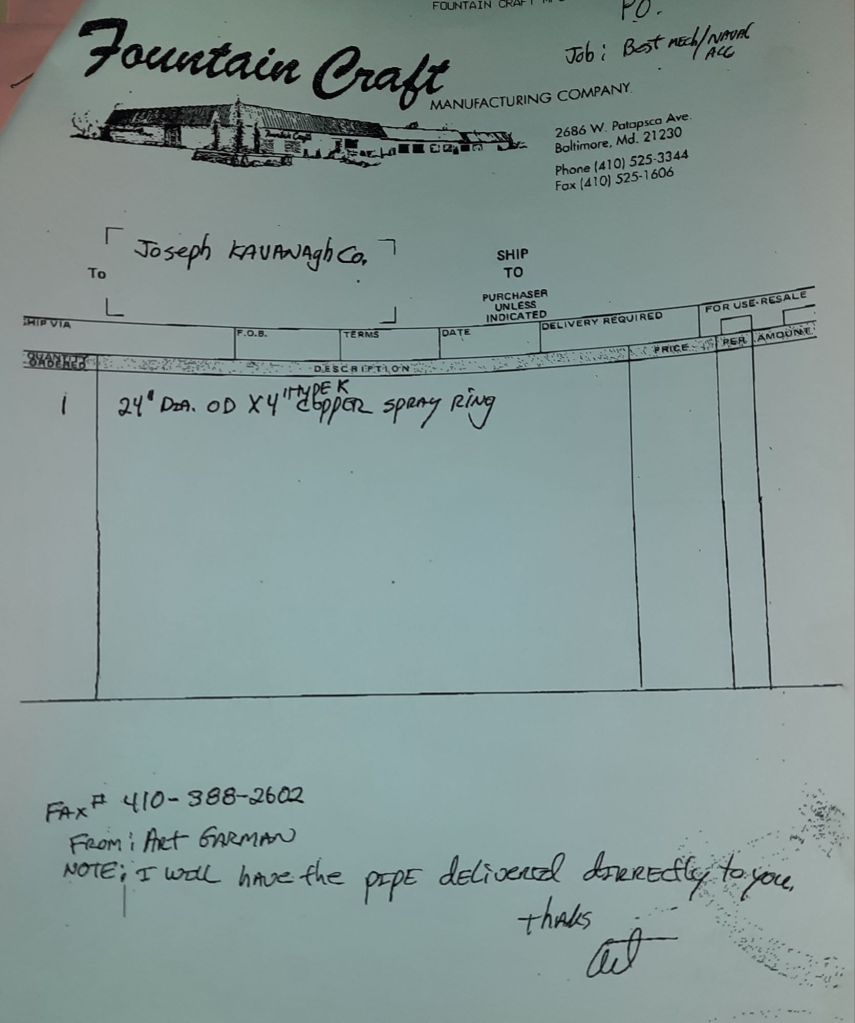 FOUNTAIN CRAFT
PO.
Job: Best mech/NAVAL
ACC
Fountain Craft
MANUFACTURING COMPANY
2686 W. Patapsco Ave.
Baltimore, Md. 21230
Phone (410) 525-3344
Fax (410) 525-1606
Fountain Craft
To
Joseph KAVANAgh Co.
SHIP
TO
PURCHASER
UNLESS
INDICATED
SHIP VIA
F.O.B.
TERMS
DATE
DELIVERY REQUIRED
FOR USE-RESALE
QUANTITY
ORDERED
DESCRIPTION
PRICE
PER
AMOUNT
1
24" DIA. OD X 4" TYPE K COPPER SPRAY RING
FAX# 410-388-2602
FROM: ART GARMAN
NOTE: I WILL have the PIPE delivered dIRREctly to you.
thaks
Art